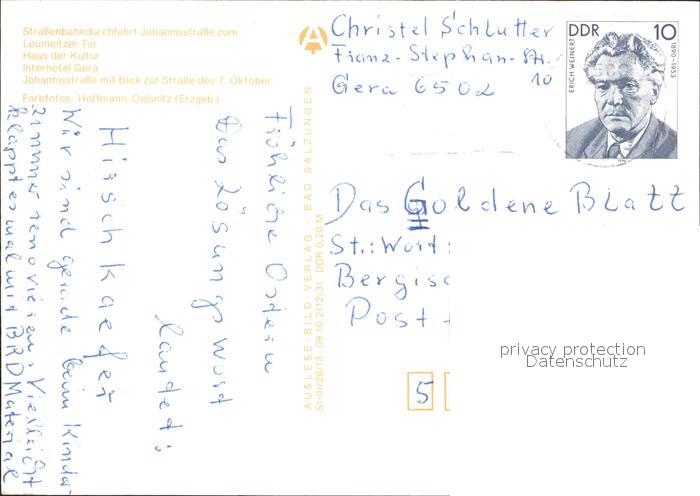 Straßenbahndurchfahrt Johannisstraße zum
Leumnitzer Tor
Haus der Kultur
Interhotel Gera
Johannisstraße mit Blick zur Straße des 7. Oktober
Farbfotos: Hoffmann, Oelsnitz (Erzgeb.)
Fröhliche Ostern
Das Lösungswort
lautet:
Hirschkaefer
Wir sind gerade beim Kinder-
zimmer renovieren. Vielleicht
klappt es mal mit BRD Material
AUSLESE-BILD-VERLAG BAD SALZUNGEN
S1-III/26/13 09 10 2112/31 DDR 0,20 M
Christel Schlutter
Franz-Stephan-Str.
10
Gera 6502
DDR 10
ERICH WEINERT
1890-1953
1990
Das Goldene Blatt
St.: Wort:
Bergisc
Post
5
privacy protection
Datenschutz